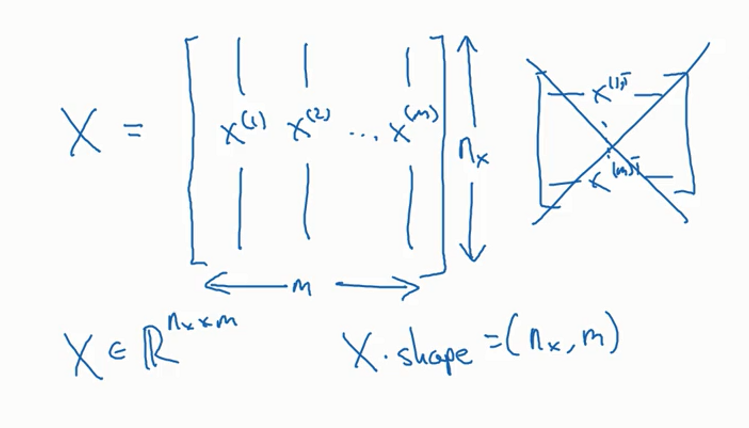 X = [ x^(1) x^(2) ... x^(m) ]
n_x
m
x^(1)T
x^(m)T
X ∈ ℝ^(n_x × m)
X.shape = (n_x, m)